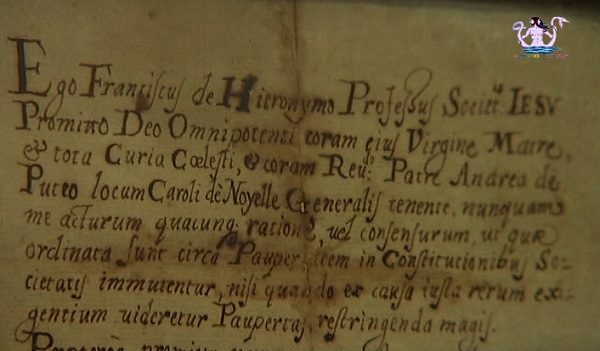 Ego Franciscus de Hieronymo Professus Societ. IESV
Promitto Deo Omnipotenti coram eius Virgine Matre,
& tota Curia Cœlesti, & coram Reu. Patre Andrea de
Puteo locum Caroli dè Noyelle Generalis tenente, nunquam
me acturum quacunq; ratione, uel consensurum, ut quæ
ordinata sunt circa Paupertatem in Constitutionibus So-
cietatis immutentur, nisi quando ex causa iusta rerum exi-
gentium uideretur Paupertas restringenda magis.